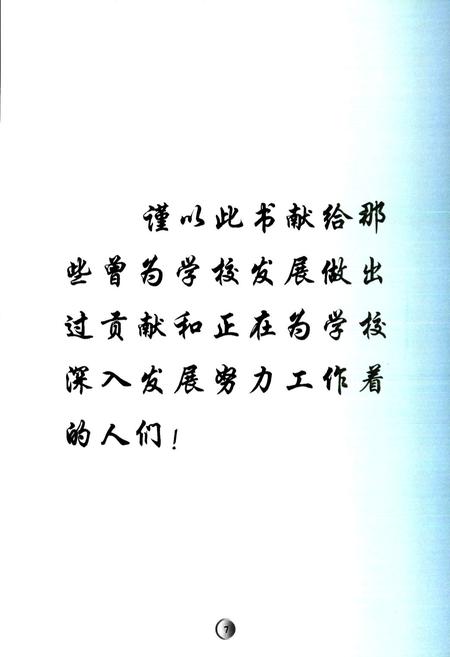 谨以此书献给那
些曾为学校发展做出
过贡献和正在为学校
深入发展努力工作着
的人们！
7